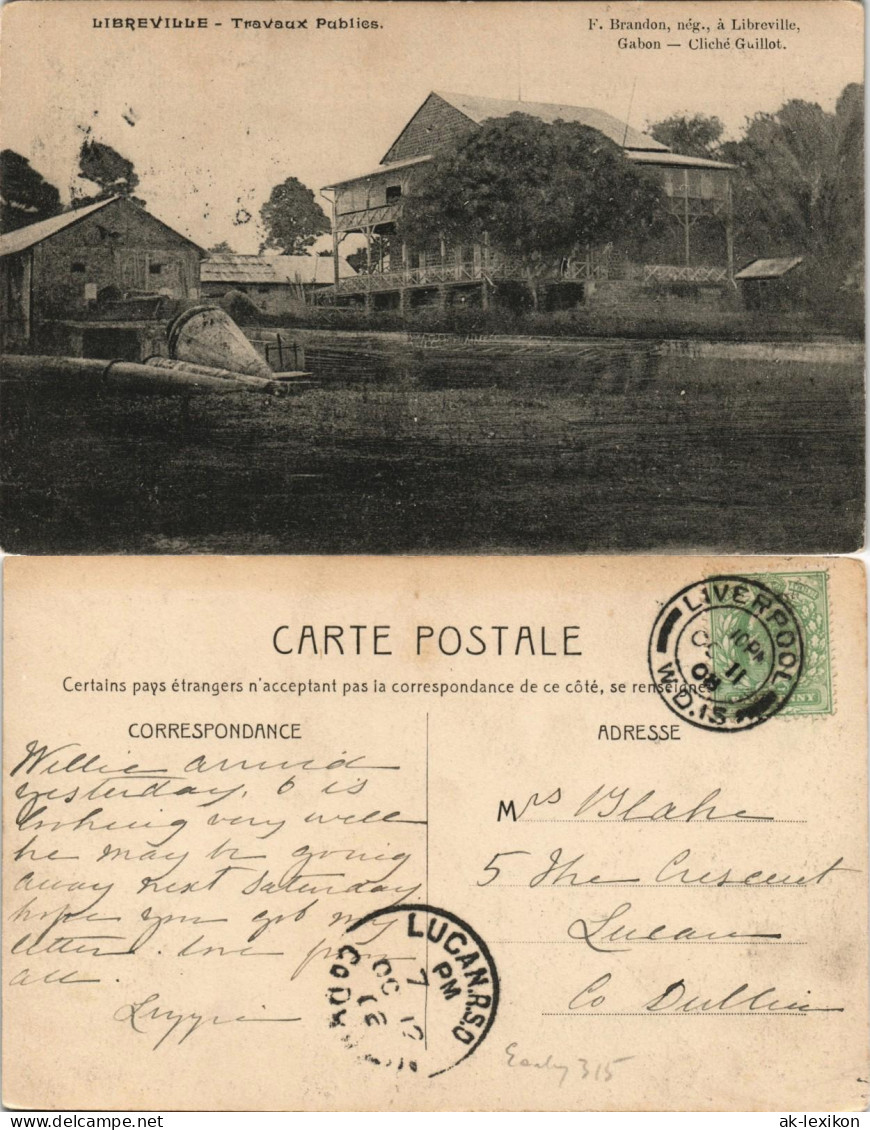 LIBREVILLE - Travaux Publics.
F. Brandon, nég., à Libreville,
Gabon — Cliché Guillot.
CARTE POSTALE
Certains pays étrangers n'acceptant pas la correspondance de ce côté, se renseigner
LIVERPOOL
10 PM
OC 11
08
W.D.IS
CORRESPONDANCE
ADRESSE
Willie arrived
yesterday, & is
looking very well
he may be going
away next Saturday
hope you got my
letter. love from
all.
Mrs Blake
5 The Crescent
Lucan
Co Dublin
LUCAN.R.S.O
7 PM
OC 12
Co. DUBLIN
Early 315
ak-lexikon